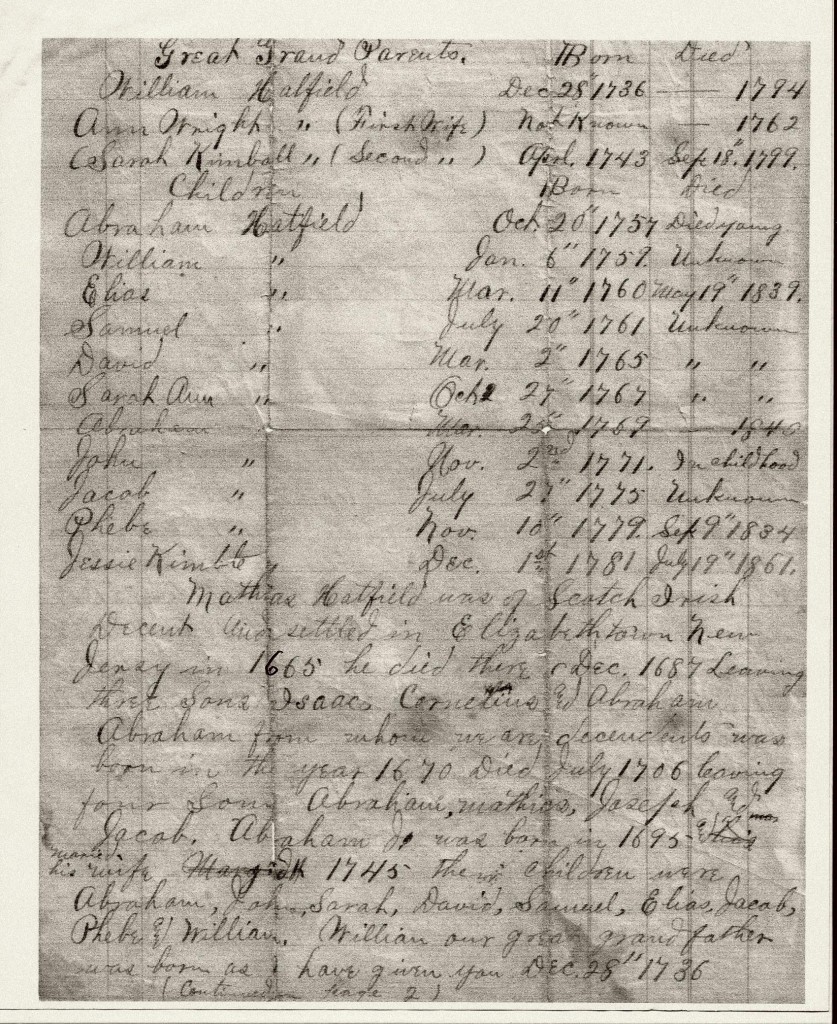 Great Grand Parents. Born Died
William Hatfield Dec 28" 1736 — — 1794
Ann Wright " (First Wife) Not Known — 1762
(Sarah Kimball " (Second ") April, 1743 Sept 18". 1799.
Children Born Died
Abraham Hatfield Oct. 20" 1757 Died young
William " Jan. 6" 1759. Unknown
Elias " Mar. 11" 1760 May 19" 1839.
Samuel " July 20" 1761 Unknown
David " Mar. 2" 1765 " "
Sarah Ann " Oct 27" 1767 " "
Abraham Mar. 1769 — 1840
John " Nov. 2nd 1771. In childhood
Jacob " July 27" 1775 Unknown
Phebe " Nov. 10" 1779. Sep 9" 1834
Jessie Kimble " Dec. 1st 1781 July 19" 1861.
Mathias Hatfield was of Scotch Irish
Decent and settled in Elizabethtown New
Jersy in 1665 he died there Dec. 1687 Leaving
three Sons Isaac, Cornelius & Abraham
Abraham from whom we are decendents was
born in the year 1670 Died July 1706 leaving
four Sons Abraham, Mathias, Joseph &
Jacob. Abraham Jr was born in 1695 &
married
his wife 1745 their children were
Abraham, John, Sarah, David, Samuel, Elias, Jacob,
Phebe & William. William our great grand father
was born as I have given you Dec. 28" 1736
(Continued on page 2)